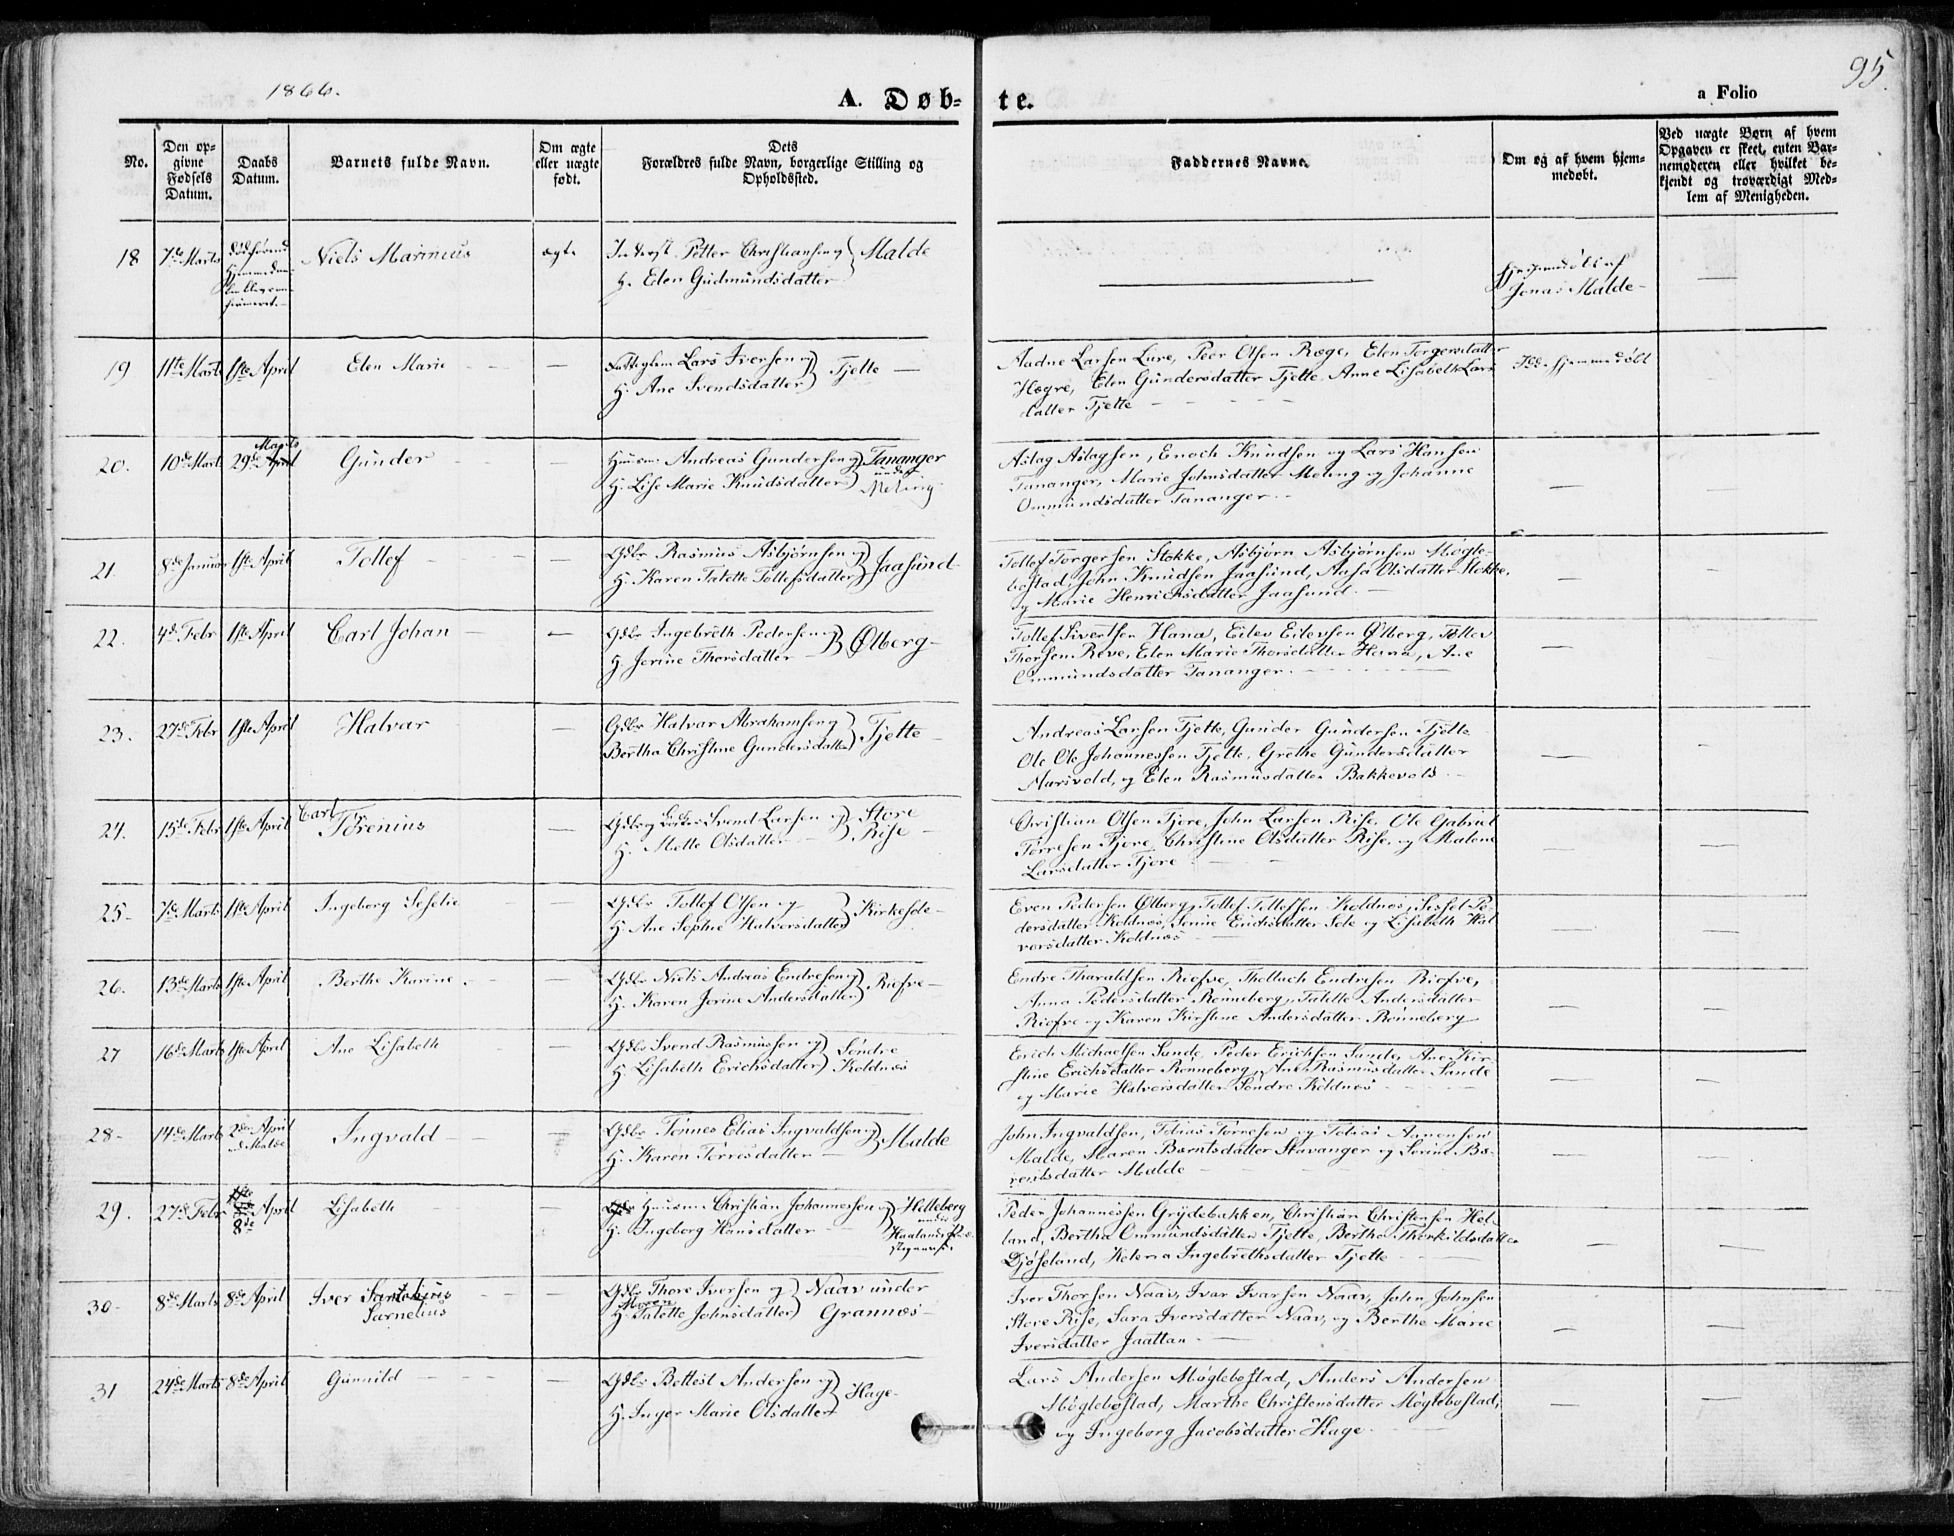 1866.
95
A. Døb-
te.
a Folio
No.
Den op-
givne
Fødsels
Datum.
Daabs
Datum.
Barnets fulde Navn.
Om ægte
eller uægte
født.
Dets
Forældres fulde Navn, borgerlige Stilling og
Opholdssted.
Faddernes Navne.
Om og af hvem hjem-
medøbt.
Ved uægte Børn af hvem
Opgaven er skeet, enten Bar-
nemoderen eller hvilket be-
kjendt og troværdigt Med-
lem af Menigheden.
18
7de Marts
Niels Marinius
ægte
Petter Christiansen og
H. Elen Gudmundsdatter
Malde
Hjemmedøbt af
Jonas Malde -
19
11te Marts
1ste April
Elen Marie
Lars Iversen og
H. Ane Svendsdatter
Tjelte
Aadne Larsen Lure, Peer Olsen Ræge, Elen Torgersdatter
Hægre, Elen Gundersdatter Tjelte, Anne Lisabeth Lars
datter Tjelte
hjemmedøbt
20.
10de Marts
29de April
Marts
Gunder
Huusm. Andreas Gundersen og
H. Lise Marie Knudsdatter
Tananger
under
Meling
Aslag Aslagsen, Enoch Knudsen og Lars Hansen
Tananger, Marie Johnsdatter Meling og Johanne
Ommundsdatter Tananger. -
21.
8de Januar
1ste April
Tollef
Gdbr Rasmus Asbjørnsen og
H. Karen Talette Tollefsdatter
Jaasund
Tollef Torgersen Stokke, Asbjørn Asbjørnsen Møgle-
bostad, John Knudsen Jaasund, Aasa Olsdatter Stokke,
og Marie Henrichsdatter Jaasund. -
22.
4de Febr
1ste April
Carl Johan
Gdbr Ingebreth Pedersen og
H. Jorine Thorsdatter
Ølberg
Tollef Sivertsen Hana, Eilev Eilevsen Ølberg, Tollev
Thorsen Reve, Elen Marie Thorsdatter Hana, Ane
Ommundsdatter Tananger. -
23.
27de Febr
1ste April
Halvar
Gdbr Halvar Abrahamsen og
Bertha Christine Gundersdatter
Tjelte
Andreas Larsen Tjelte, Gunder Gundersen Tjelte
Ole Ole Johannessen Tjelte, Grethe Gundersdatter
Aarsvold, og Elen Rasmusdatter Bakkevold. -
24.
15de Febr
1ste April
Carl
Torenius
Gdbr og Svend Larsen og
H. Mette Olsdatter
Store
Rise
Christian Olsen Tjore, John Larsen Rise, Ole Gabriel
Torresen Tjore, Christine Olsdatter Rise, og Malene
Larsdatter Tjore
25-
7de Marts
1ste April
Ingeborg Seselie
Gdbr Tollef Olsen og
H. Ane Sophie Halvorsdatter
Kirkesole
Even Pedersen Ølberg, Tollef Tollefsen Koldnes, Sissel Pe-
dersdatter Koldnes, Serine Erichsdatter Sole og Lisabeth Hal
vorsdatter Koldnes
26.
13de Marts
1ste April
Berthe Karine
Gdbr Niels Andreas Endresen og
H. Karen Jorine Andersdatter
Risfre
Endre Tharaldsen Riefre, Thollach Endresen Riofre,
Anna Pedersdatter Rønneberg, Talette Andersdatter
Riofre og Karen Kirstine Andersdatter Rønneberg
27
16de Marts
1ste April
Ane Lisabeth
Gdbr Svend Rasmussen og
H. Lisabeth Erichsdatter
Søndre
Koldnes
Erich Michaelsen Sande, Peder Erichsen Sande, Ane Kir-
stine Erichsdatter Rønneberg, Ane Rasmusdatter Sande
og Marie Halvorsdatter Søndre Koldnes
28-
14de Marts
2den April
Malde
Ingvald
Gdbr Tønnes Elias Ingvaldsen og
H. Karen Torresdatter
Malde
John Ingvaldsen, Tobias Torresen og Tobias Aanensen
Malde, Maren Berntsdatter Stavanger og Serine Be-
rentsdatter Malde
29.
27de Febr
8de April
Lisabeth
Huusm. Christian Johannessen og
H. Ingeborg Hansdatter
Helleberg
under
Haalands Præ-
stegaard.
Peder Johannessen Grydebakken, Christian Christensen Hel-
land, Bertha Ommundsdatter Tjelte, Bertha Thorkildsdatter
Djøseland, Helena Ingebrethsdatter Tjelte
30-
8de Marts
8de April
Iver
Sarnelius
Gdbr Thore Iversen og
H. Maren Talette Johnsdatter
Naav under
Grannes
Iver Thorsen Naav, Ivar Ivarsen Naav, John Johnsen
Store Rise, Sara Iversdatter Naav, og Berthe Marie
Iversdatter Jaattan -
31
24de Marts
8de April
Gunnild
Gdbr Bottest Andersen og
H. Inger Marie Olsdatter
Hage-
Lars Andersen Møglebostad, Anders Andersen
Møglebostad, Marthe Christensdatter Møglebostad,
og Ingeborg Jacobsdatter Hage